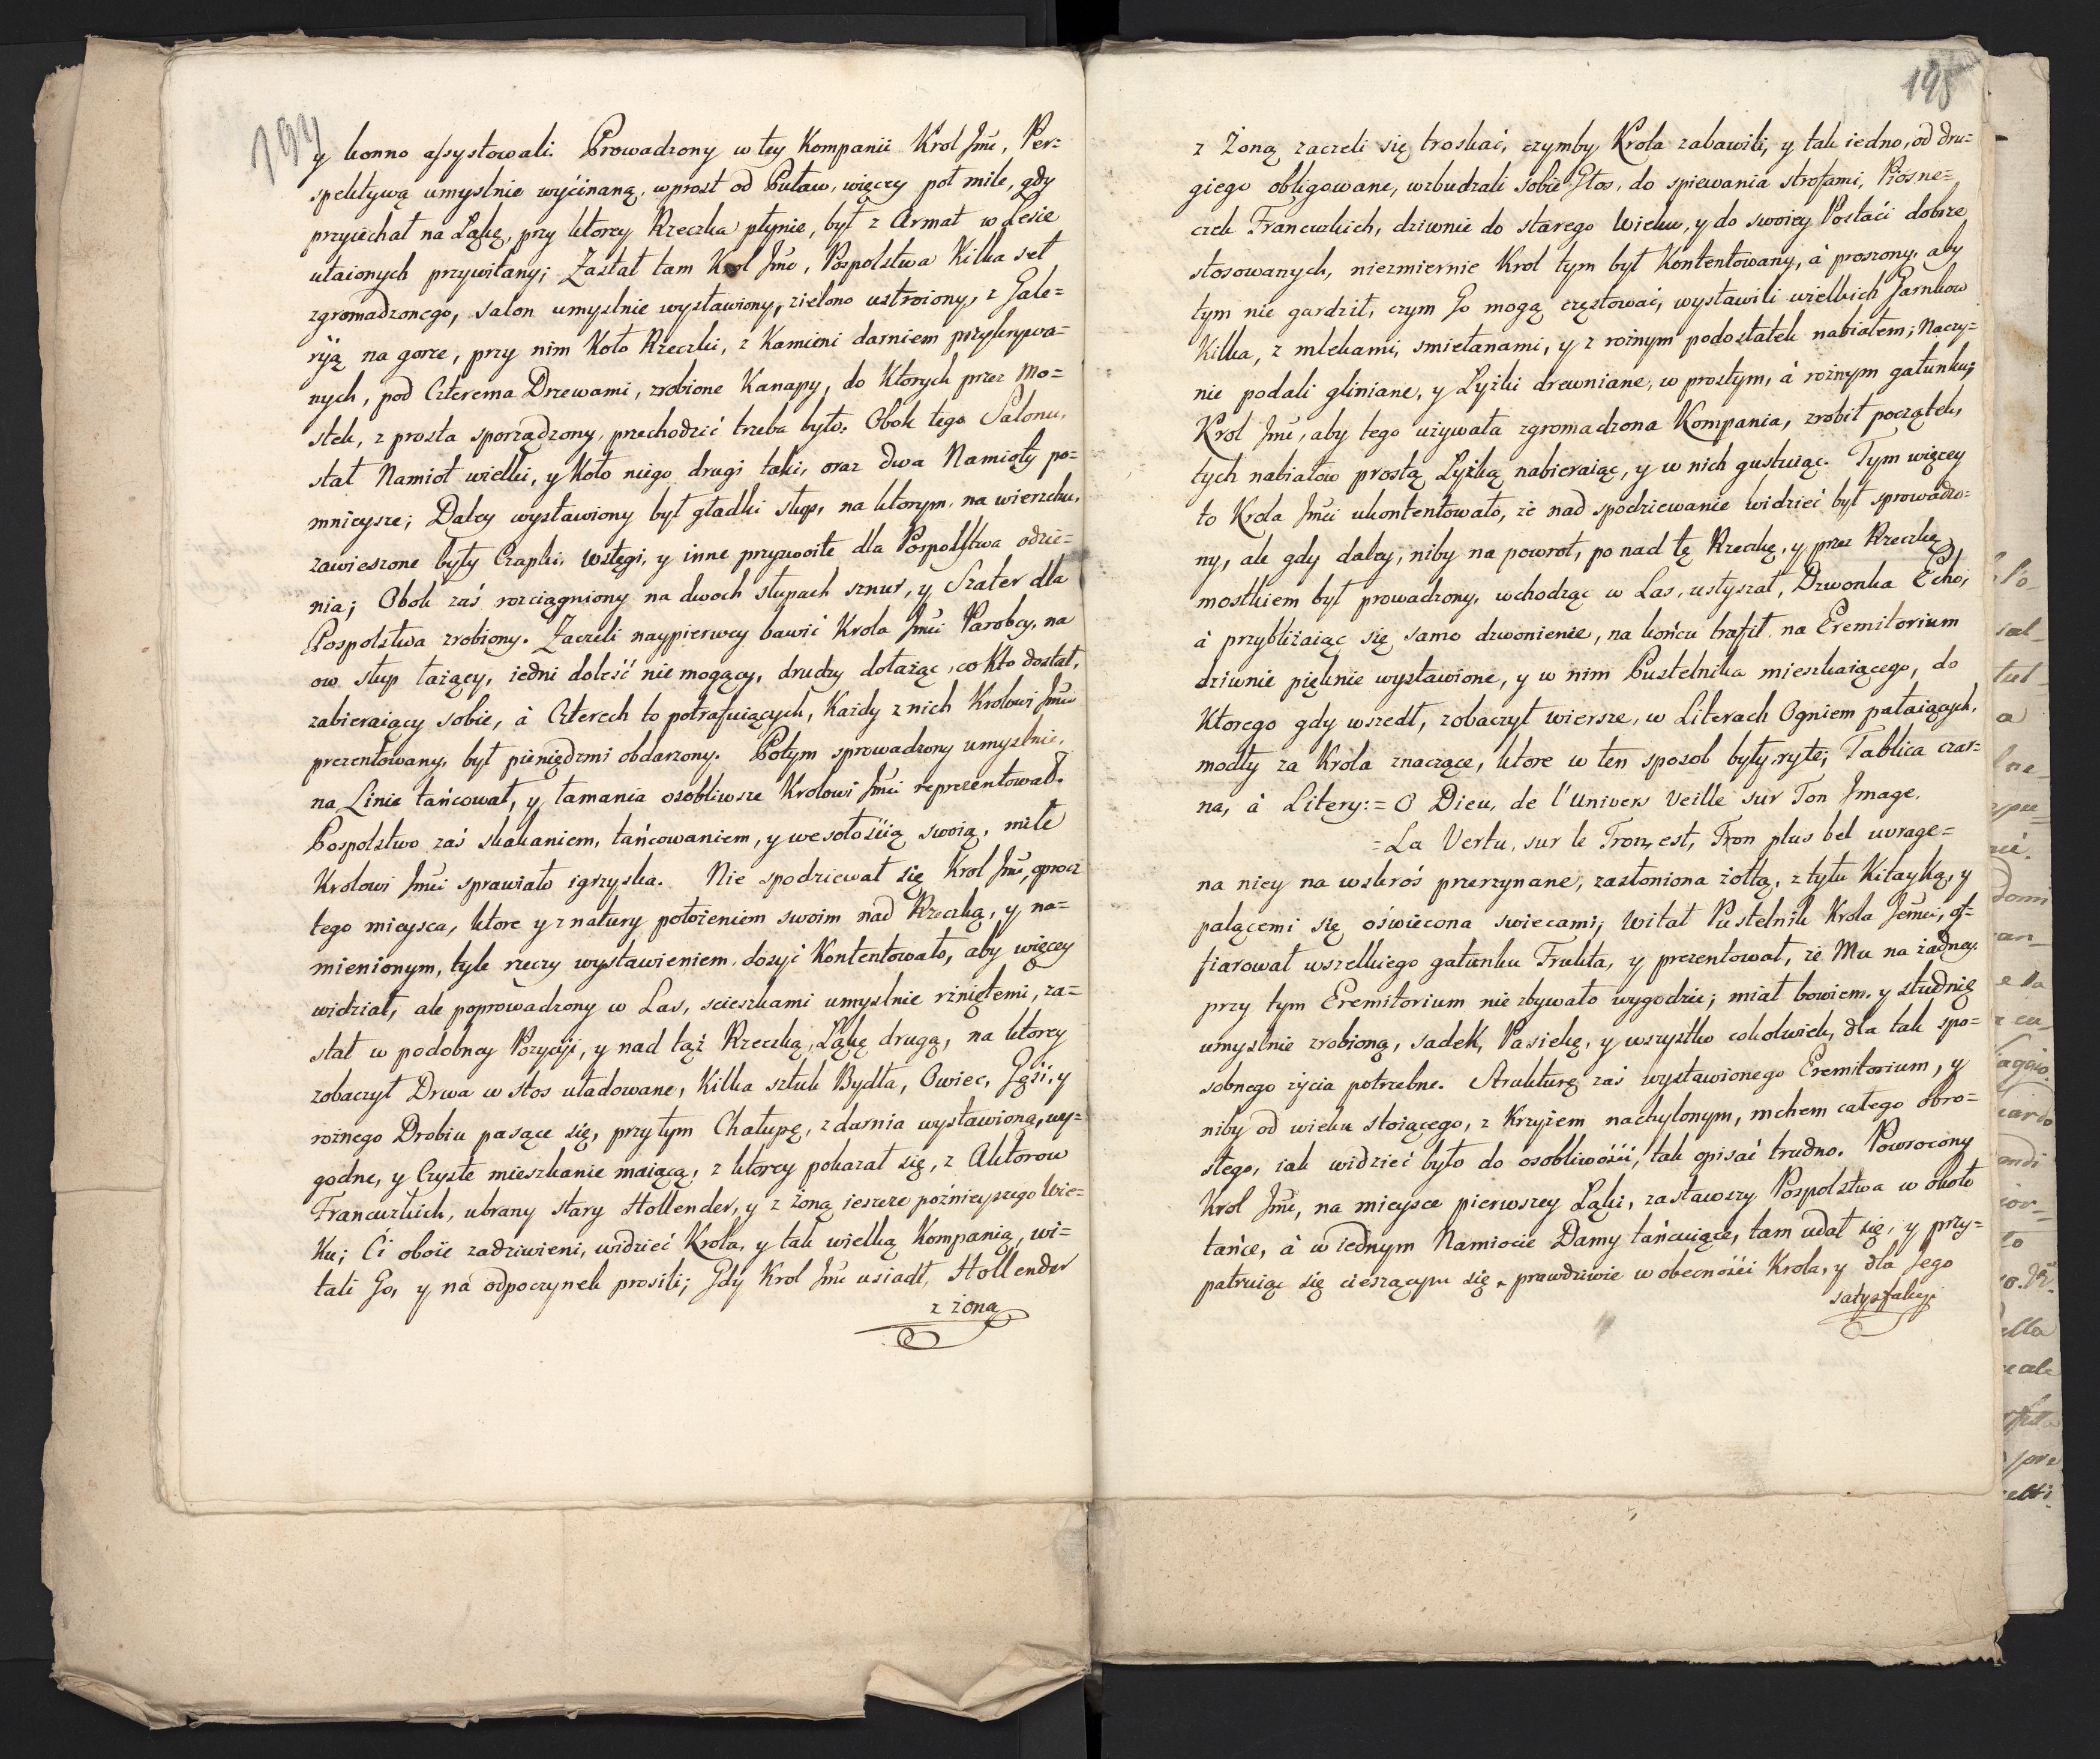 194
y konno assystowali. Prowadzony w tey Kompanii Krol Jmć, Per=
spektywą umyslnie wyćinaną, wprost od Puław, więcey poł mile, gdy
przyiechał na Łąkę, przy ktorey Rzeczka płynie, był z Armat w Lesie
utaionych przywitany; Zastał tam Krol Jmć, Pospolstwa Kilka set
zgromadzonego, salon umyslnie wystawiony, zielono ustroiony, z Gale=
ryią na gorze, przy nim Koło Rzeczki, z Kamieni darniem przykrywa=
nych, pod Czterema Drzewami, zrobione Kanapy, do Ktorych przez Mo=
stek, z prosta sporządzony, przechodzić trzeba było. Obok tego Salonu,
stał Namiot wielki, y Koło niego drugi taki, oraz dwa Namioty po=
mnieysze; Daley wystawiony był gładki słup, na ktorym na wierzchu,
zawieszone były Czapki, Wstęgi, y inne przyzwoite dla Pospolstwa odzie=
nia; Obok zaś rozciągniony na dwoch słupach sznur, y Szater dla
Pospolstwa zrobiony. Zaczeli naypierwey bawić Krola Jmći Parobcy, na
ow słup łażący, iedni doleść nie mogący, drudzy dołażąc, co Kto dostał,
zabieraiący sobie, à Czterech to potrafuiących, Każdy z nich Krolowi Jmći
prezentowany, był pieniędzmi obdarzony. Potym sprowadzony umyslnie,
na Linie tańcował, y łamania osobliwsze Krolowi Jmći reprezentował.
Pospolstwo zaś skakaniem, tańcowaniem, y wesołośćią swoią, miłe
Krolowi Jmći sprawiało igrzyska. Nie spodziewał się Krol Jmć, oprocz
tego mieysca, ktore y z natury położeniem swoim nad Rzeczką, y na=
mienionym, tyle rzeczy wystawieniem, dosyć Kontentowało, aby więcey
widział, ale poprowadzony w Las, scieszkami umyslnie rżniętemi, za=
stał w podobney Pozycyi, y nad tąż Rzeczką, Łąkę drugą, na ktorey
zobaczył Drwa w stos uładowane, Kilka sztuk Bydła, Owiec, Gęsi, y
rożnego Drobiu pasące się, przy tym Chałupę, z darnia wystawioną, wy=
godne, y Czyste mieszkanie maiącą, z ktorey pokazał się, z Aktorow
Francuzkich, ubrany stary Hollender, y z żoną ieszcze poźnieyszego Wie=
ku; Ci oboie zadziwieni, widzieć Krola, y tak wielką Kompanią, wi=
tali Go, y na odpoczynek prosili; Gdy Krol Jmć usiadł, Hollender
z żoną
195
z Żoną zaczeli się troskać, czymby Krola zabawili, y tak iedno, od dru=
giego obligowane, wzbudzali sobie Głos, do spiewania strofami, Piosne=
czek Francuzkich, dziwnie do starego Wieku, y do swoiey Postaći dobrze
stosowanych, niezmiernie Krol tym był Kontentowany, à proszony, aby
tym nie gardził, czym Go mogą częstować, wystawili wielkich Garnkow
Kilka, z mlekami, smietanami, y z rożnym podostatek nabiałem; Naczy=
nie podali gliniane, y Łyżki drewniane, w prostym, à rożnym gatunku;
Krol Jmć, aby tego używała zgromadzona Kompania, zrobił początek,
tych nabiałow prostą Łyżką nabieraiąc, y w nich gustuiąc. Tym więcey
to Krola Jmći ukontentowało, że nad spodziewanie widzieć był sprowadzo=
ny, ale gdy daley, niby na powrot, po nad tę Rzeczkę, y przez Rzeczkę
mostkiem był prowadzony, wchodząc w Las, usłyszał, Dzwonka Echo,
à przybliżaiąc się, samo dzwonienie, na końcu trafił, na Eremitorium
dziwnie pięknie wystawione, y w nim Pustelnika mieszkaiącego, do
Ktorego gdy wszedł, zobaczył wiersze, w Literach Ogniem pałaiących,
modły za Krola znaczące, ktore w ten sposob były ryte; Tablica czar=
na, à Litery: = O Dieu, de l'Univers Veille sur Ton Image,
=La Vertu, sur le Tron, est, Tron plus bel uvrage=
na niey na wskroś przerzynane, zasłoniona żołtą, z tyłu Kitayką, y
palącemi się oświecona swiecami; Witał Pustelnik Krola Jemći, of=
fiarował wszelkiego gatunku Frukta, y prezentował, że Mu na żadney
przy tym Eremitorium nie zbywało wygodzie; miał bowiem y studnię
umyslnie zrobioną, sadek, Pasiekę, y wszystko cokolwiek, dla tak spo=
sobnego życia potrzebne. Strukturę zaś wystawionego Eremitorium, y
niby od wieku stoiącego, z Krzyżem nachylonym, mchem całego obro=
słego, iak widzieć było do osobliwośći, tak opisać trudno. Powrocony
Krol Jmć, na mieysce pierwszey Łąki, zastawszy Pospolstwa w około
tańce, à w iednym Namiocie Damy tańcuiące, tam udał się, y przy=
patruiąc się cieszącym się, prawdziwie w obecnośći Krola, y dla Jego
satysfakcyi